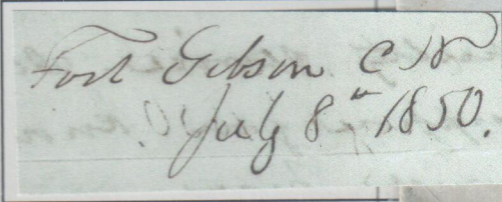 Fort Gibson C N
July 8th 1850.